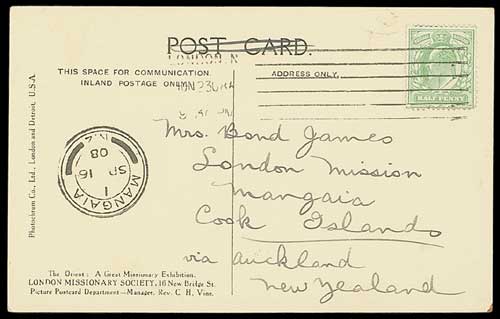 POST CARD.
LONDON N
THIS SPACE FOR COMMUNICATION.
INLAND POSTAGE ONLY.
ADDRESS ONLY.
HALF PENNY
MANGAIA
1
SP 16
08
N.Z
Mrs. Bond James
London Mission
Mangaia
Cook Islands
via Auckland
New Zealand
Photochrom Co., Ltd., London and Detroit, U.S.A.
The Orient: A Great Missionary Exhibition.
LONDON MISSIONARY SOCIETY, 16 New Bridge St.
Picture Postcard Department—Manager, Rev. C. H. Vine.